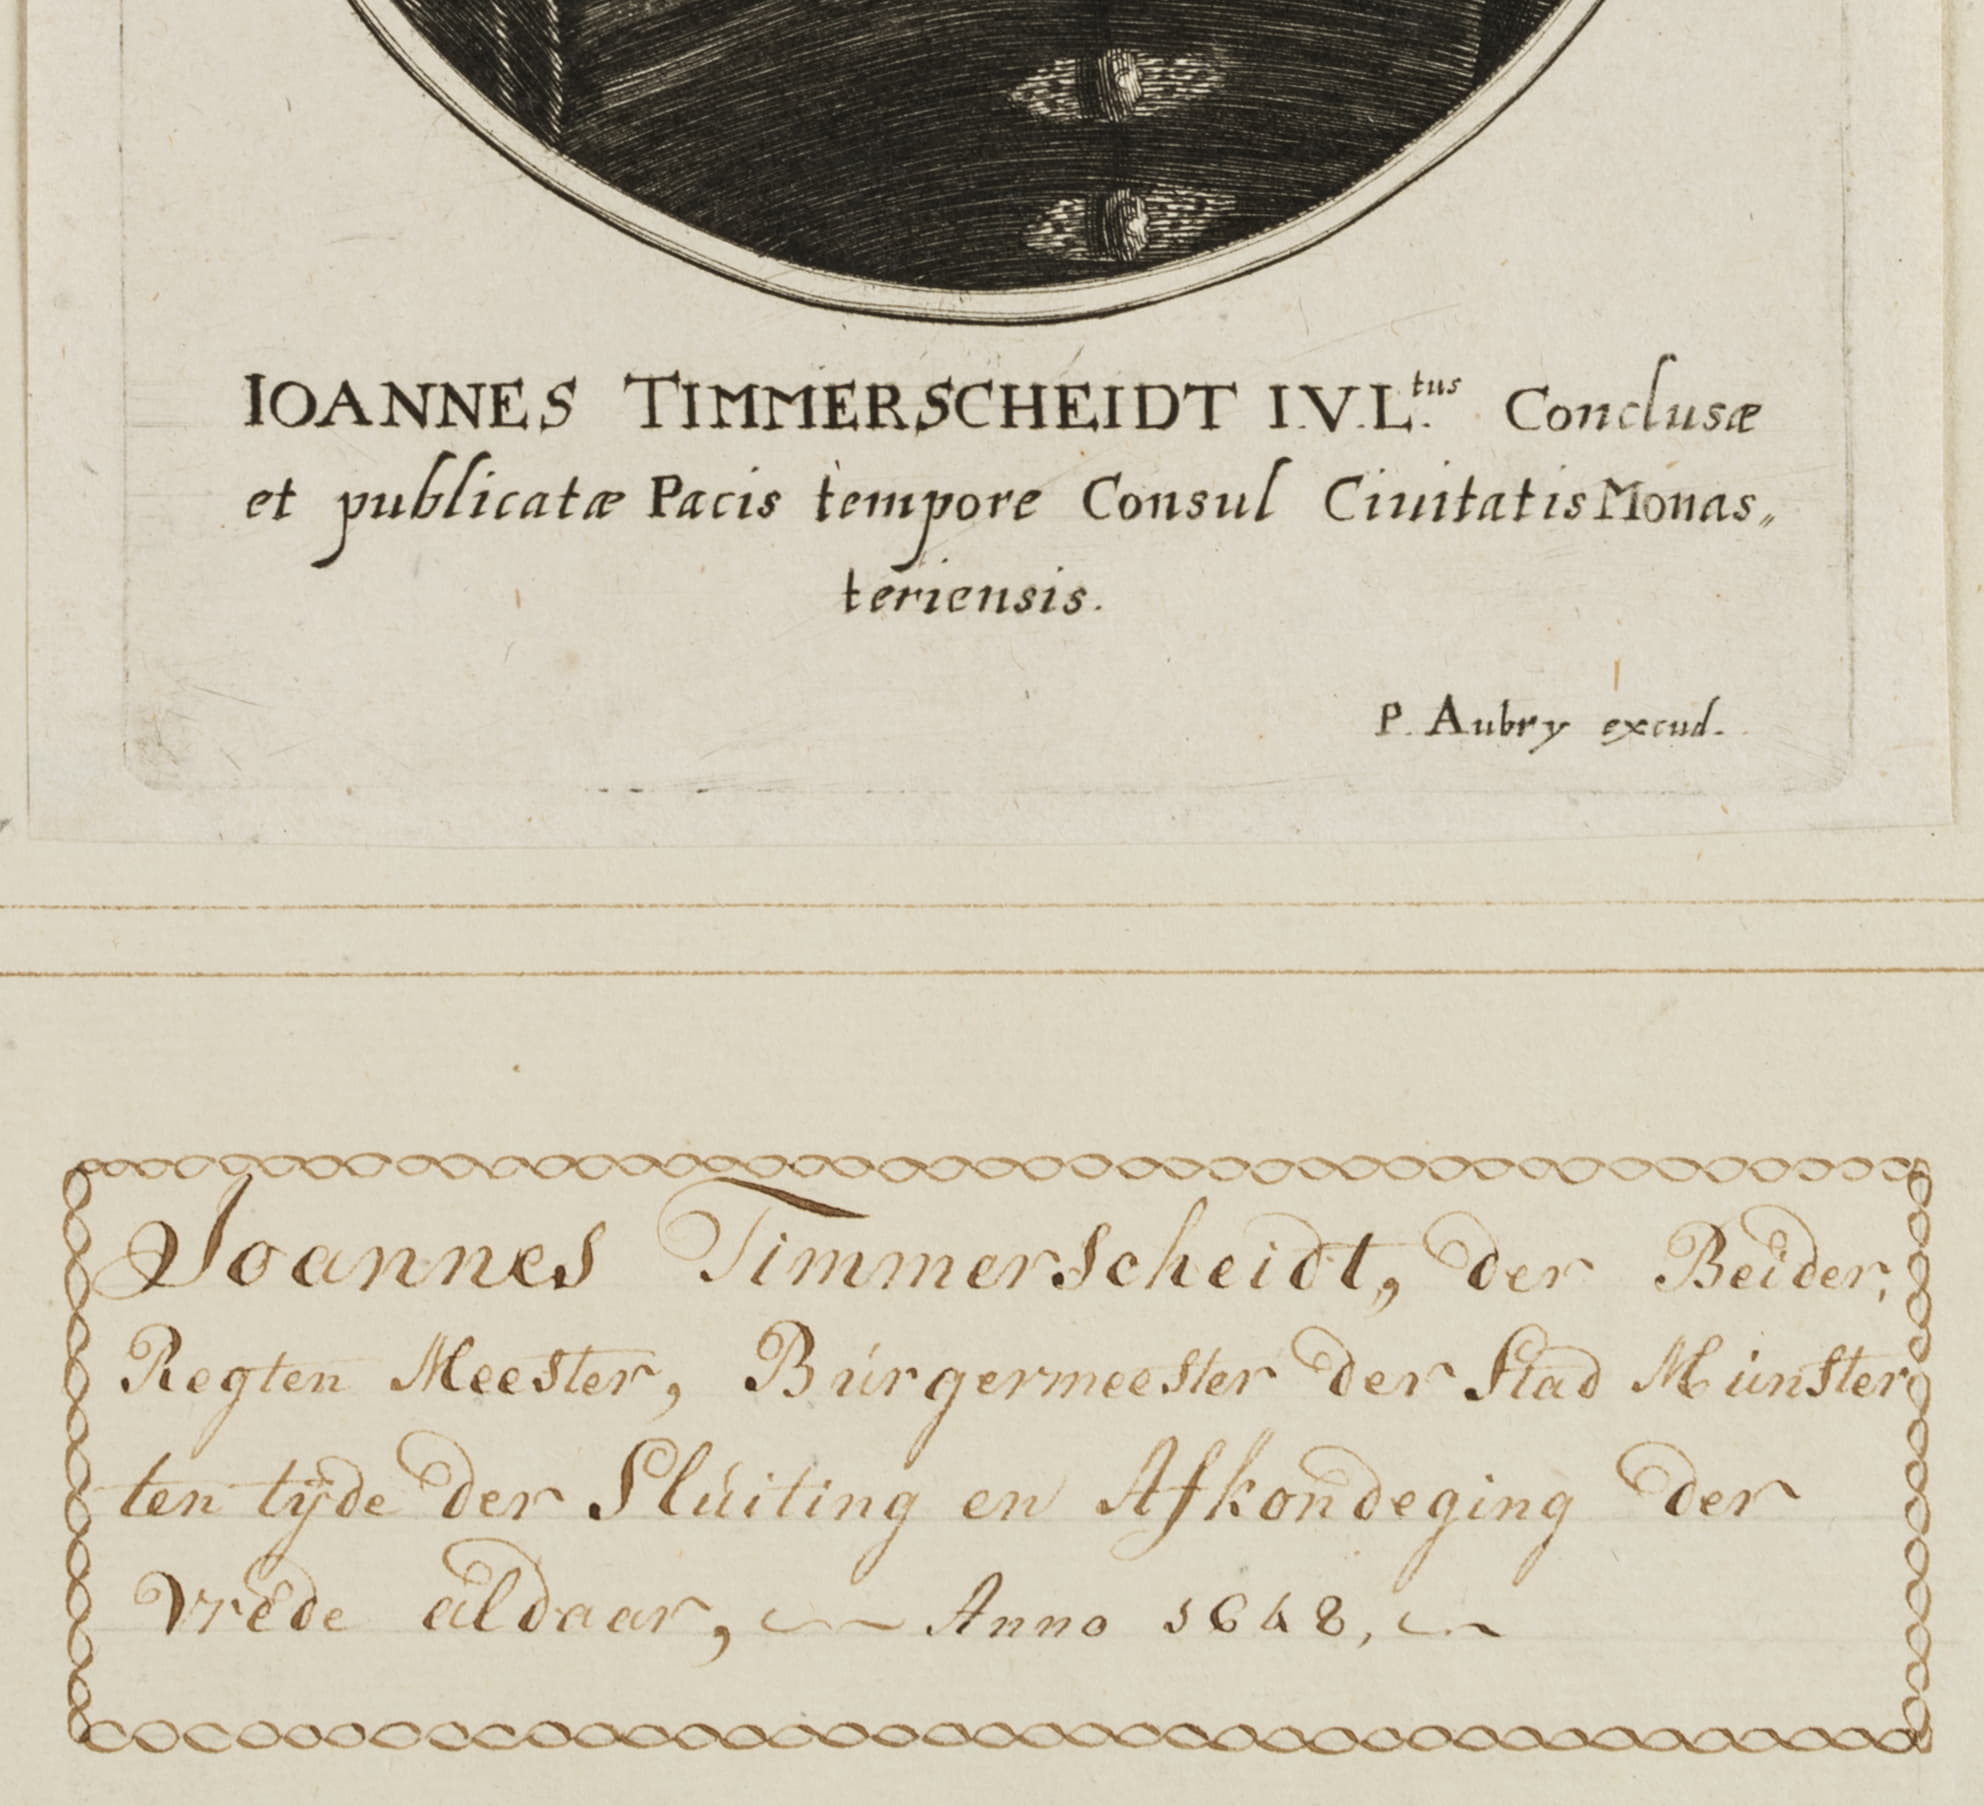 IOANNES TIMMERSCHEIDT I.V.L.tus Conclusæ
et publicatæ Pacis tempore Consul Ciuitatis Monas„
teriensis.
P. Aubry excud.
Joannes Timmerscheidt, der Beider,
Regten Meester, Búrgermeester der Stad Munster
ten tÿde der Slúiting en Afkondeging der
Vrede aldaar, Anno 1648,